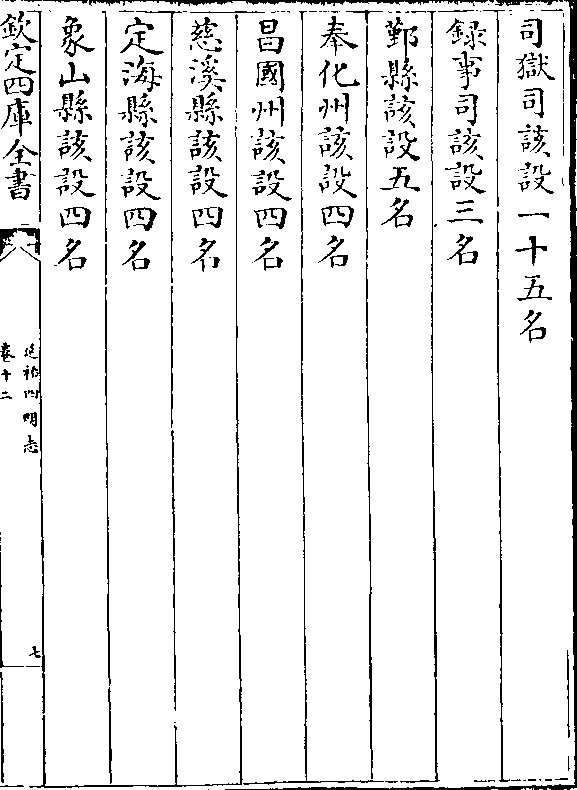 司獄司該設一十五名
録事司該設三名
鄞縣該設五名
奉化州該設四名
昌國州該設四名
慈溪縣該設四名
定海縣該設四名
象山縣該設四名
欽定四庫全書
延祐四明志
卷十二
七